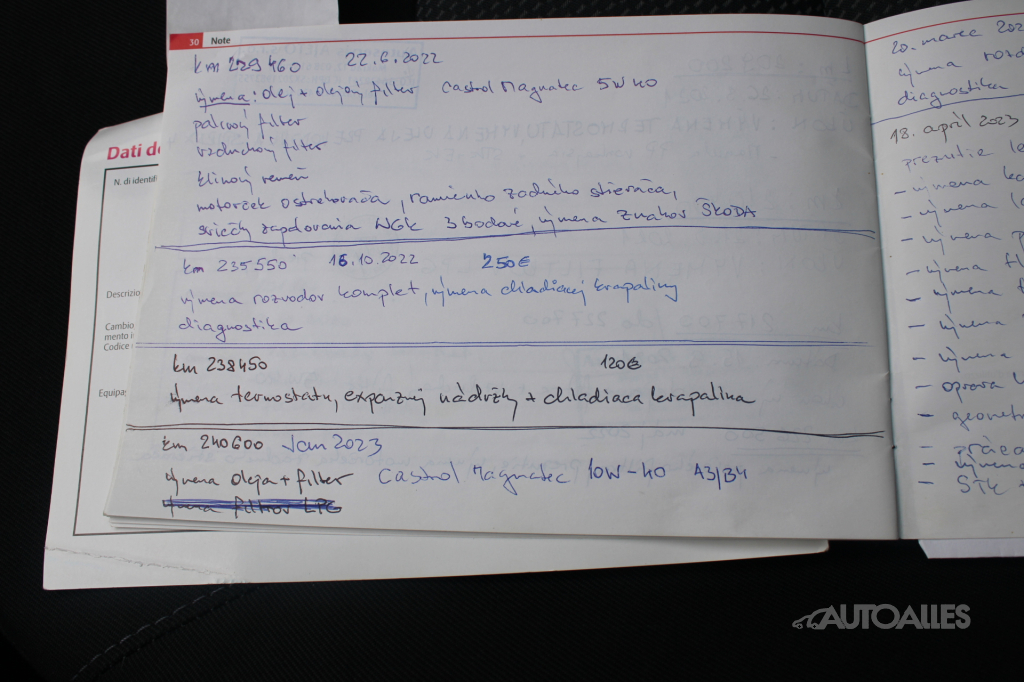 30 Note
km 229460 22.6.2022
výmena: olej + olejový filter Castrol Magnatec 5W40
palivový filter
vzduchový filter
klinový remeň
motorček ostrekovača, ramienko zadného stierača,
sviečky zapaľovania NGK 3bodové, výmena znakov ŠKODA
km 235550 16.10.2022 250€
výmena rozvodov komplet, výmena chladiacej kvapaliny
diagnostika
km 238450 120€
výmena termostatu, expanznej nádržky + chladiaca kvapalina
km 240600 Jan 2023
výmena oleja + filter Castrol Magnatec 10W-40 A3/B4
filtrov LPG
20. marec 202
výmena rozv
diagnostika
18. apríl 2023
prezutie le
- výmena
- výmena
- výmena
- výmena
- výmena
- výmena
- výmena
- oprava
- geomet
- práca
- výmena
- STK
Dati de
N. di identifi
Descrizio
Cambio
mento i
Codice
Equipa
AUTOALLES